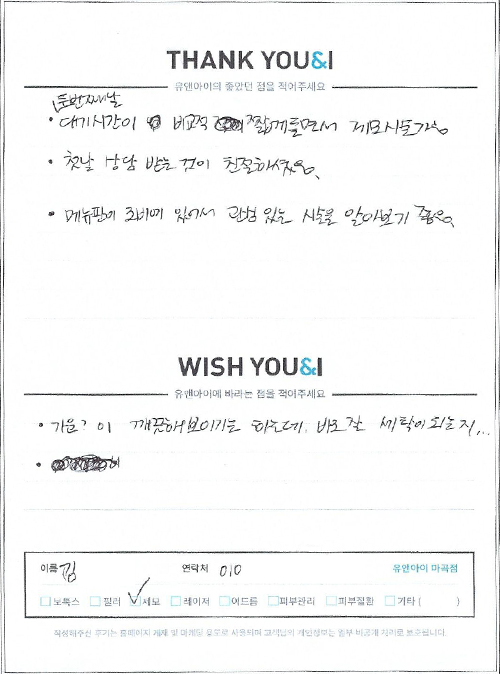 THANK YOU&I
유앤아이의 좋았던 점을 적어주세요
(두번째날
• 대기시간이 비교적 짧게들면서 제모시술가능
• 첫날 상담 받는 것이 친절하셨음.
• 메뉴판이 로비에 있어서 관심 있는 시술을 알아보기 좋음.
WISH YOU&I
유앤아이에 바라는 점을 적어주세요
• 가운? 이 깨끗해보이기는 하는데, 바로잘 세탁이 되는지...
•
이름 김 연락처 010 유앤아이 마곡점
보톡스 필러 ✓제모 레이저 여드름 피부관리 피부질환 기타 ( )
작성해주신 후기는 홈페이지 게재 및 마케팅 용도로 사용되며 고객님의 개인정보는 일부 비공개 처리로 보호됩니다.